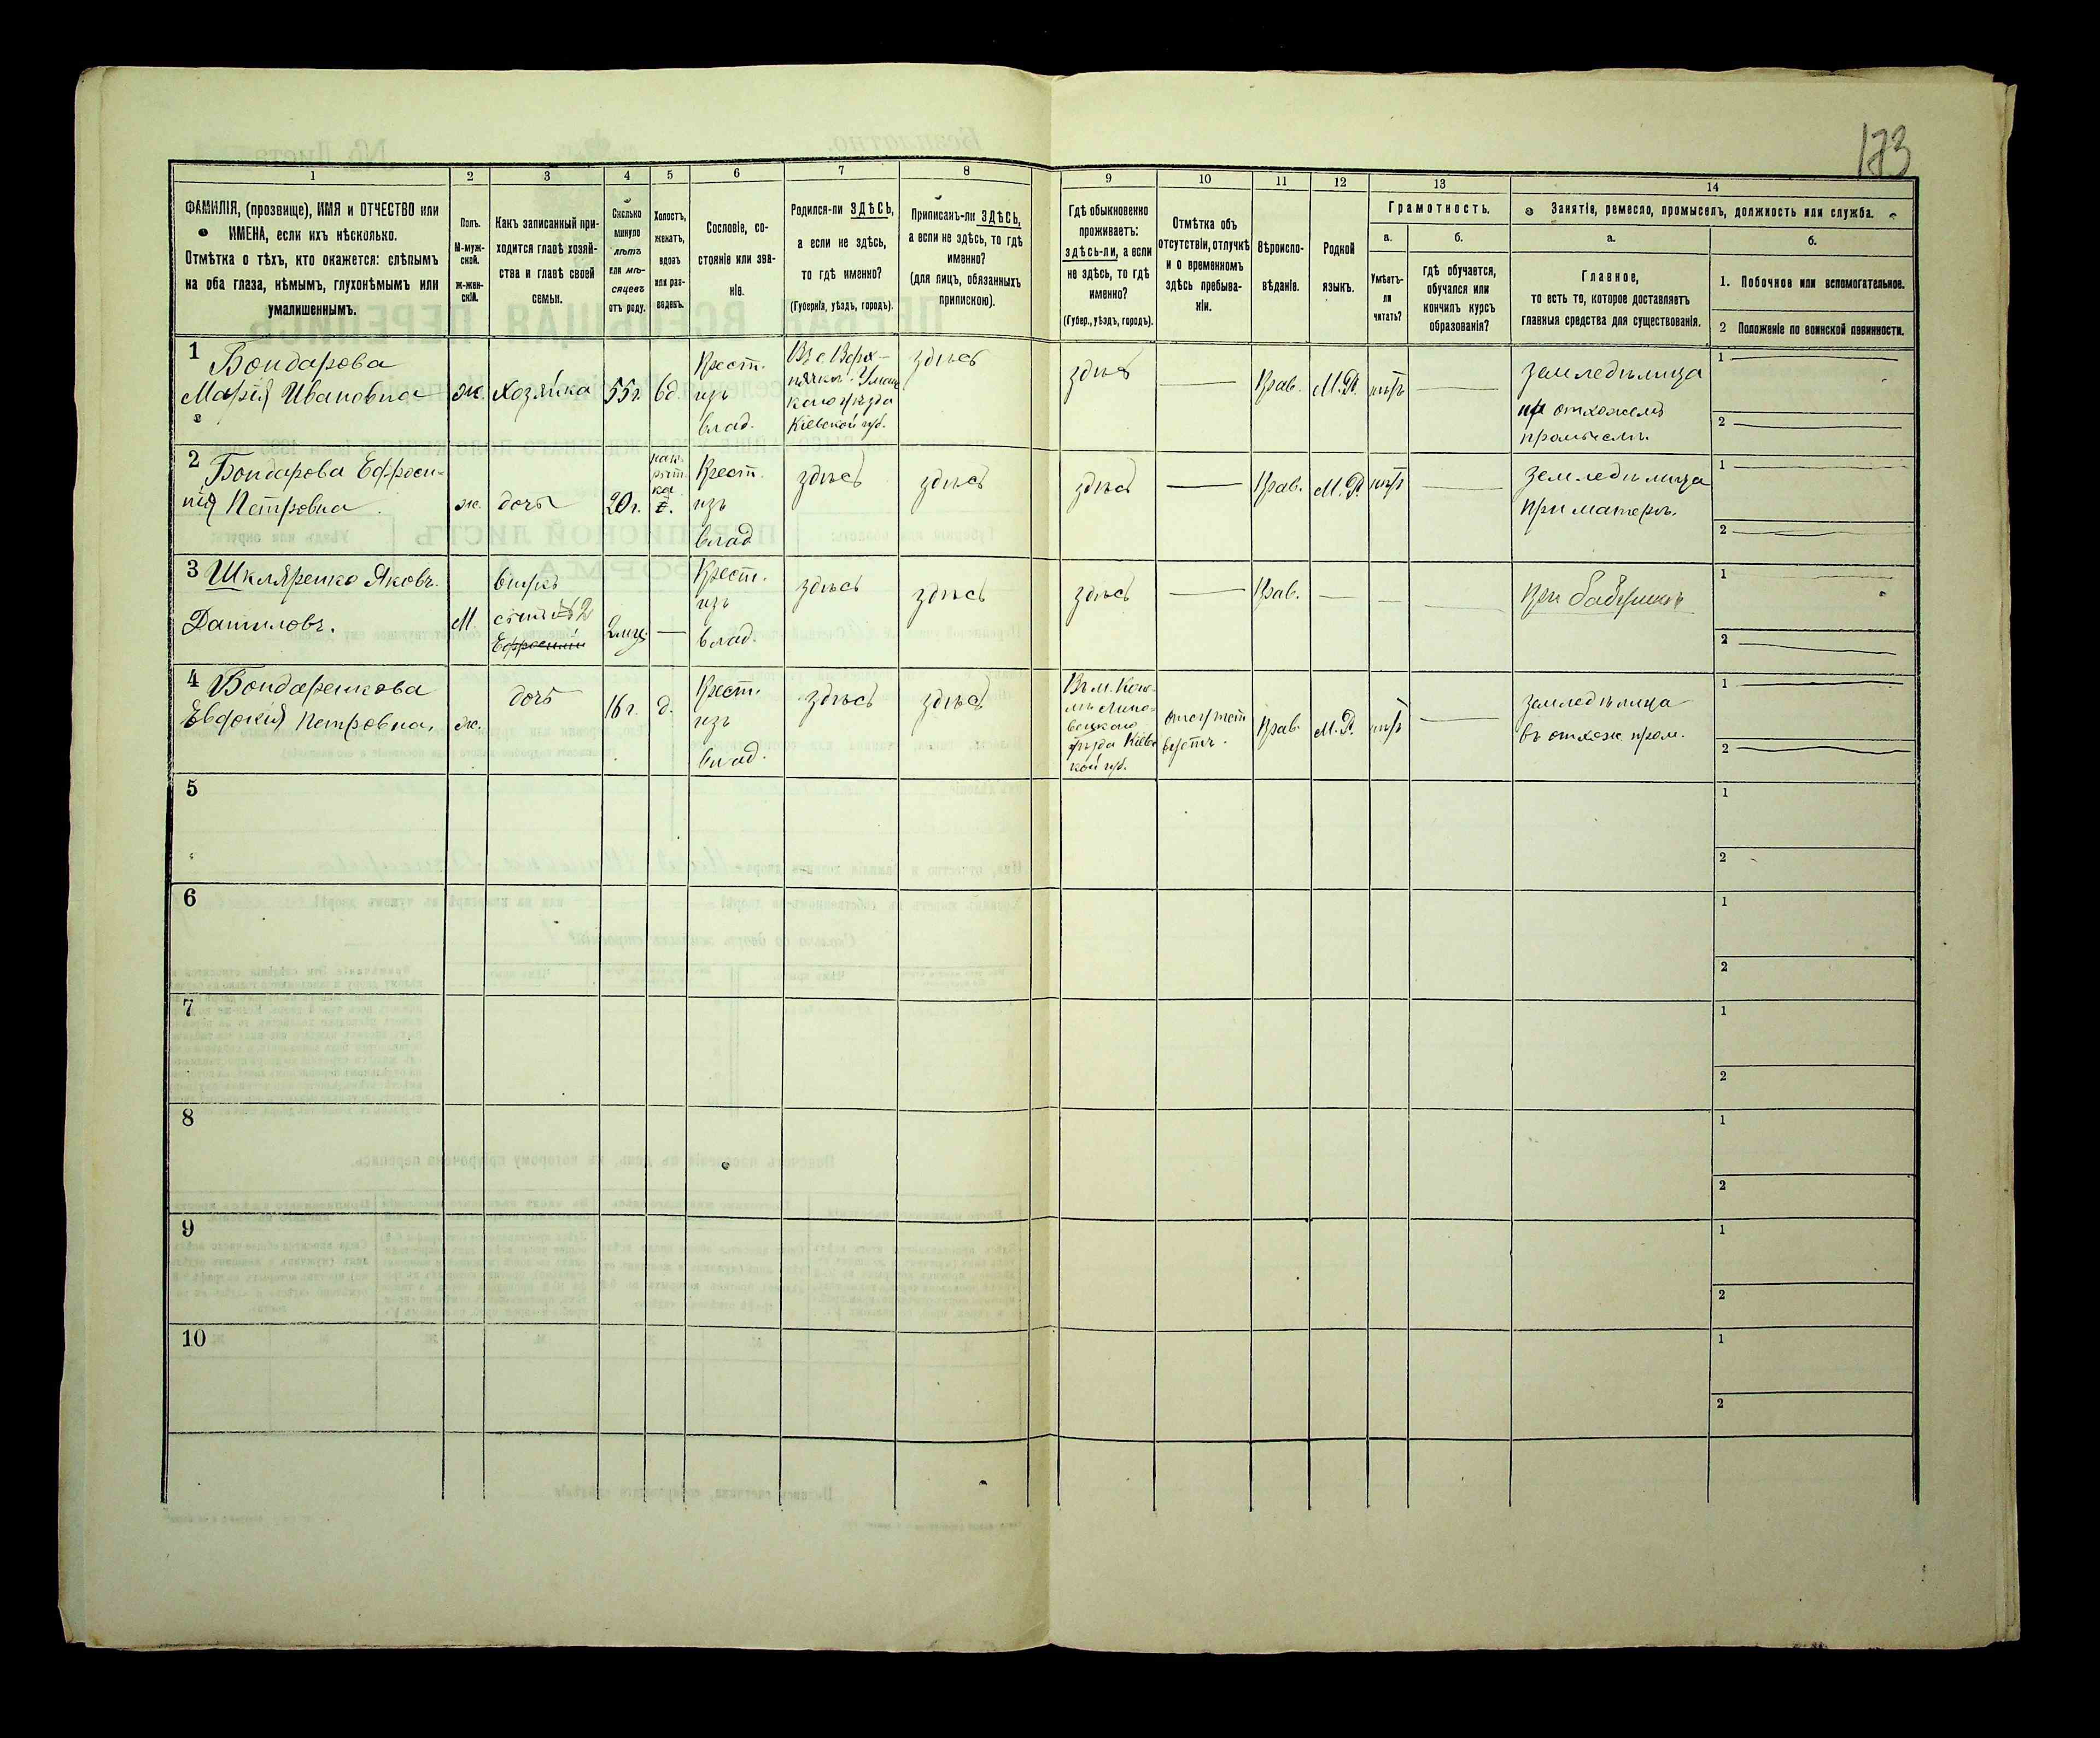 173
1
2
3
4
5
6
7
8
9
10
11
12
13
14
ФАМИЛІЯ, (прозвище), ИМЯ и ОТЧЕСТВО или
ИМЕНА, если ихъ нѣсколько.
Отмѣтка о тѣхъ, кто окажется: слѣпымъ
на оба глаза, нѣмымъ, глухонѣмымъ или
умалишеннымъ.
Полъ.
М-муж-
ской.
ж-жен-
скій.
Какъ записанный при-
ходится главѣ хозяй-
ства и главѣ своей
семьи.
Сколько
минуло
лѣтъ
или мѣ-
сяцевъ
отъ роду.
Холостъ,
женатъ,
вдовъ
или раз-
веденъ.
Сословіе, со-
стояніе или зва-
ніе.
Родился-ли ЗДѢСЬ,
а если не здѣсь,
то гдѣ именно?
(Губернія, уѣздъ, городъ).
Приписанъ-ли ЗДѢСЬ,
а если не здѣсь, то гдѣ
именно?
(для лицъ, обязанныхъ
припискою).
Гдѣ обыкновенно
проживаетъ:
здѣсь-ли, а если
не здѣсь, то гдѣ
именно?
(Губер., уѣздъ, городъ).
Отмѣтка объ
отсутствіи, отлучкѣ
и о временномъ
здѣсь пребыва-
ніи.
Вѣроиспо-
вѣданіе.
Родной
языкъ.
Грамотность.
а.
Умѣетъ-
ли
читать?
б.
гдѣ обучается,
обучался или
кончилъ курсъ
образованія?
Занятіе, ремесло, промыселъ, должность или служба.
а.
Главное,
то есть то, которое доставляетъ
главныя средства для существованія.
б.
1. Побочное или вспомогательное.
2 Положеніе по воинской повинности.
1
Бондарова
Марія Ивановна
ж.
Хозяйка
55 г.
вд.
Крест.
изъ
влад.
Въ с. Верх-
нячкѣ. Уманс
каго уѣзда
Кіевской губ.
здѣсь
здѣсь
—
Прав.
М.Р.
нѣтъ
—
Земледѣлица
отхожемъ
промыслѣ.
1
2
2
Бондарова Ефроси-
нія Петровна
ж.
дочь
20 г.
Крест.
изъ
влад
здѣсь
здѣсь
здѣсь
—
Прав.
М.Р.
нѣтъ
—
Земледѣлица
при матери.
1
2
3
Шкляренко Яковъ
Даниловъ.
М.
внукъ
сынъ №2
Ефросиніи
2 мѣс.
—
Крест.
изъ
влад.
здѣсь
здѣсь
здѣсь
—
Прав.
—
—
—
при бабушкѣ
1
2
4
Бондаренкова
Евдокія Петровна,
ж.
дочь
16 г.
д.
Крест.
изъ
влад.
здѣсь
здѣсь
Въ м.
Липо-
вецкаго
уѣзда Кіевс
кой губ.
отсутст
вуетъ.
Прав.
М.Р.
нѣтъ
—
Земледѣлица
въ отхож пром.
1
2
5
1
2
6
1
2
7
1
2
8
1
2
9
1
2
10
1
2